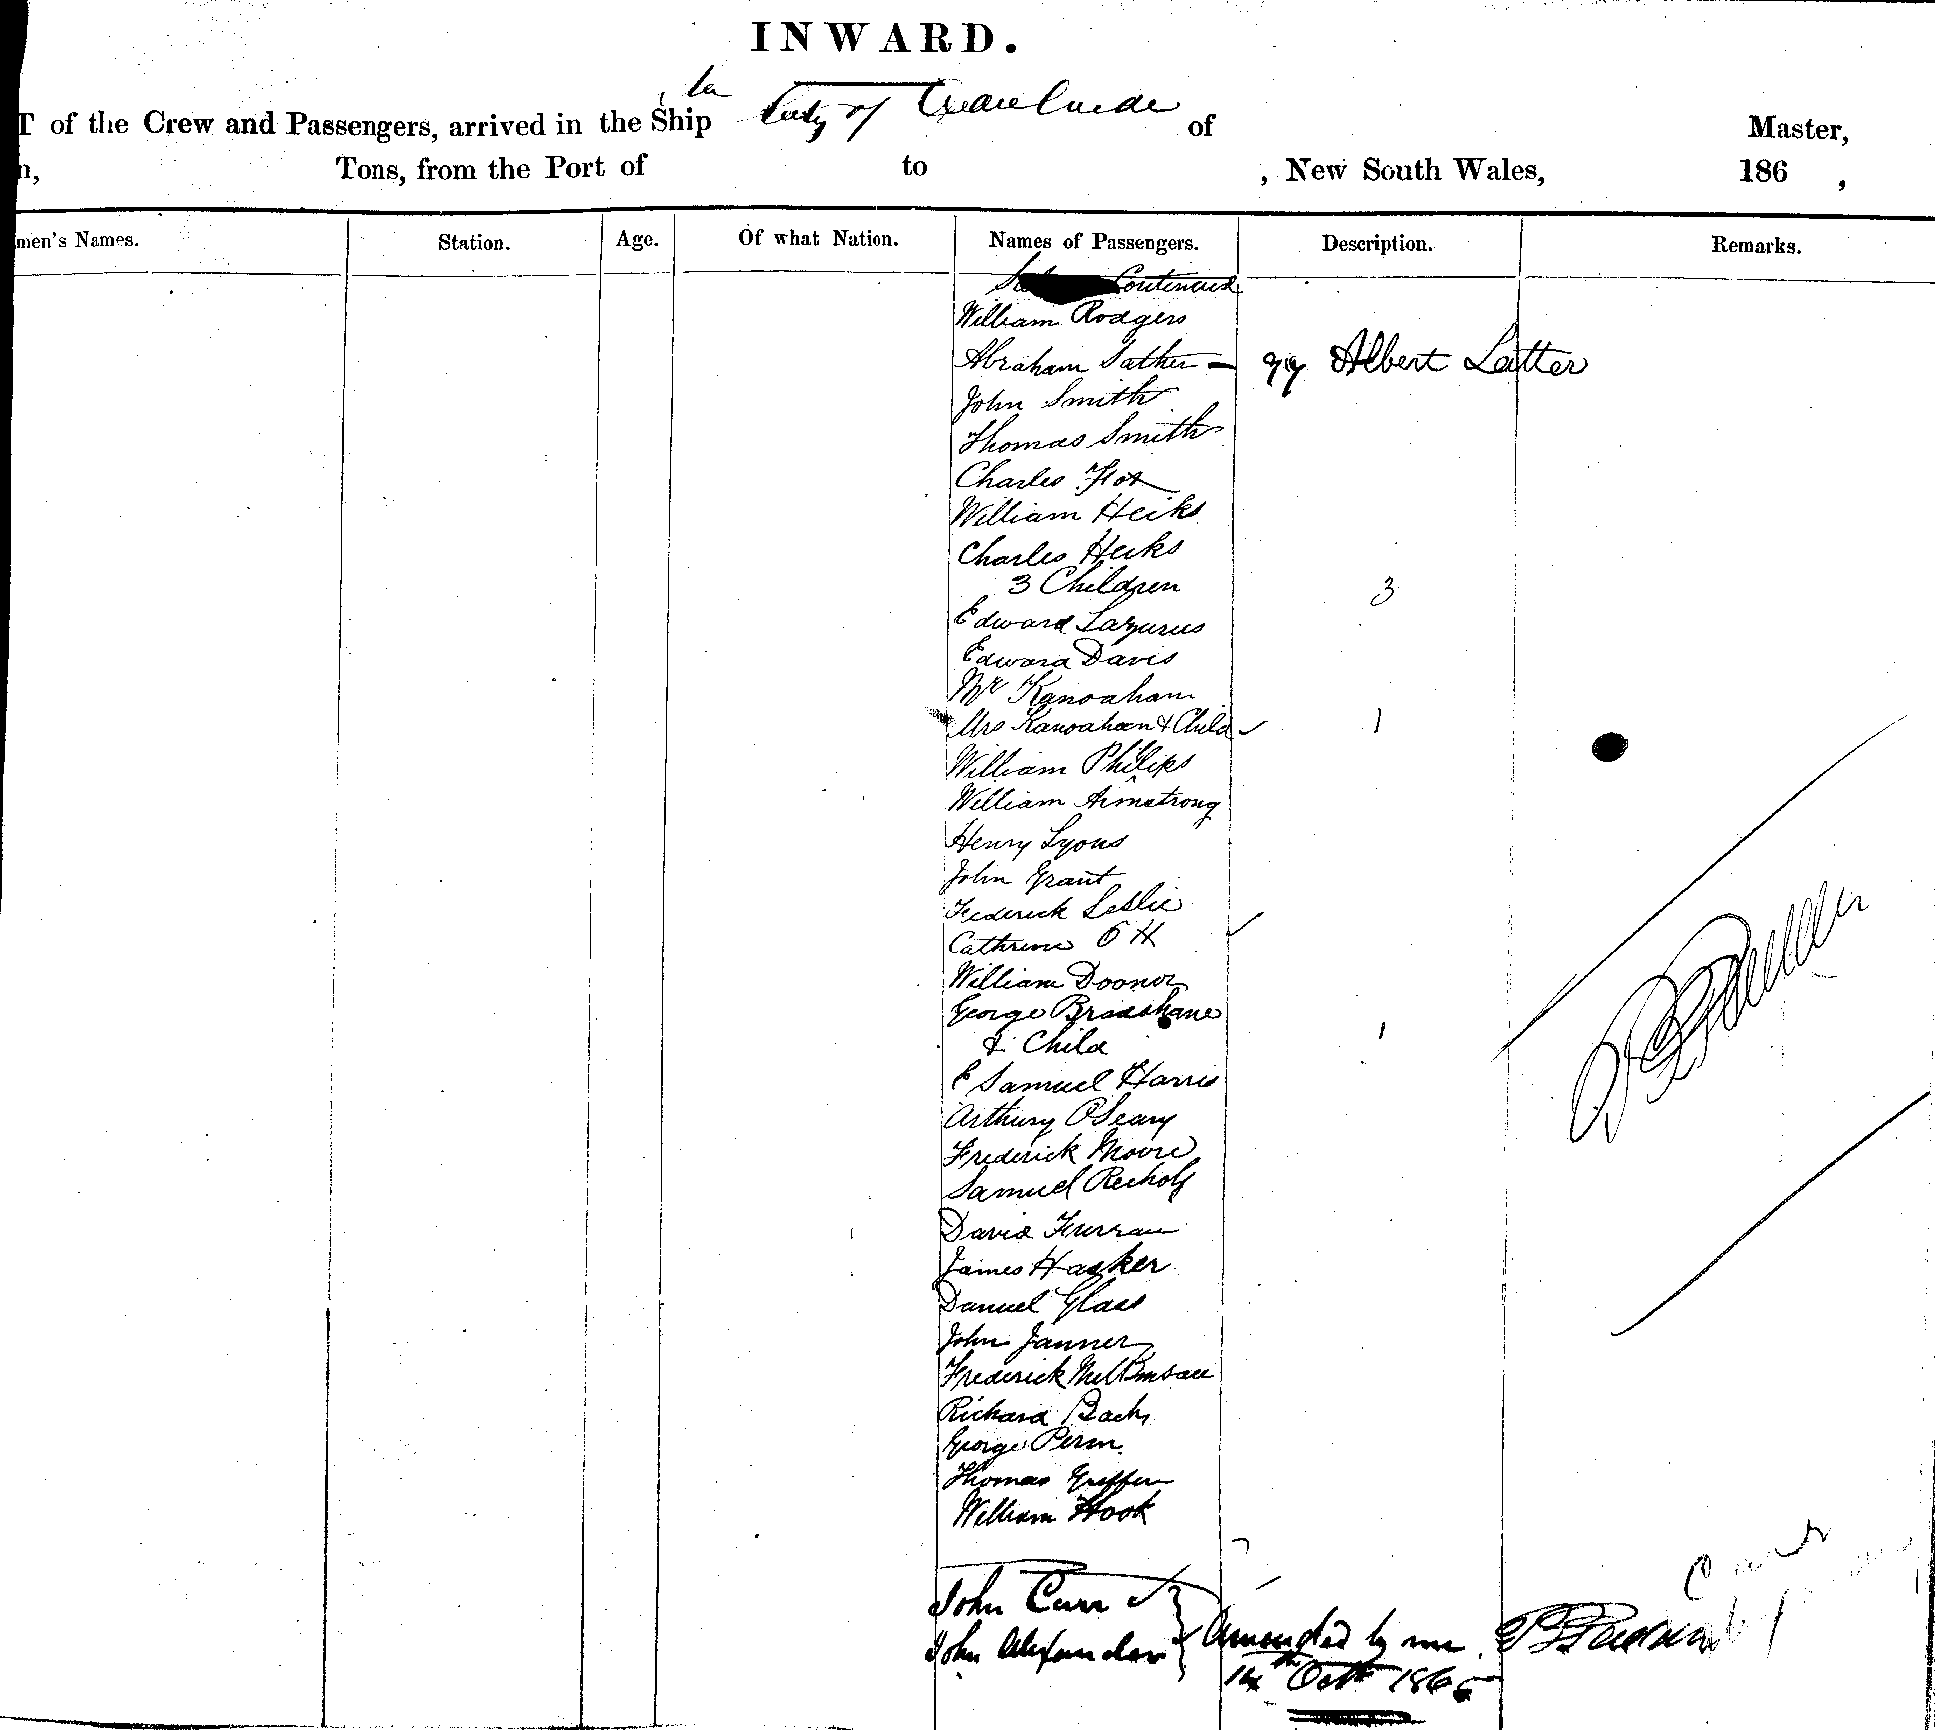 INWARD.
of the Crew and Passengers, arrived in the Ship City of Adelaide of Master,
Tons, from the Port of to , New South Wales, 186 ,
men's Names. Station. Age. Of what Nation. Names of Passengers. Description. Remarks.
Continued
William Rodgers
Abraham Sather — Albert Latter
John Smith
Thomas Smith
Charles
William Heiks
Charles Heiks
3 Children 3
Edward Lazurus
Edward Davis
Mr Kanoaham
Mrs Kanoaham & Child 1
William Philips
William Armstrong
Henry Lyons
John Grant
Frederick Leslie
Cathrine O H
William Doonor
George Bradshane
& Child 1
E Samuel Harris
Arthury O'Leary
Frederick Moore
Samuel
David Furran
James Hasker
Danuel Glass
John Janner
Frederick
Richard Bach
George Perm
Thomas Greffen
William Hook
John Carr
John Alexander Amended by me
14th Octr 1865